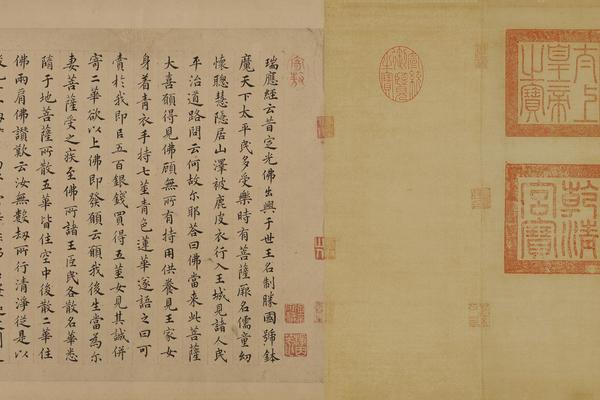 太上
皇帝
之寶
乾清
宮寶
瑞應經云昔定光佛出興于世王名制勝國號鉢
魔天下太平民多受樂時有菩薩厥名儒童幼
懷聰慧隱居山澤被鹿皮衣行入王城見諸人民
平治道路問云何故尔耶荅曰佛當來此菩薩
大喜願得見佛顧無所有持用供養見王家女
身着青衣手持七莖青色蓮華遂語之曰可
賣於我即㠯五百銀錢買得五莖女見其誠併
寄二華欲以上佛即發願云願我後生當為尔
妻菩薩受之疾至佛所諸王臣民各散名華悉
隨于地菩薩所散五華皆住空中後散二華住
佛兩肩佛讚歎云汝無數劫所行清淨從是以